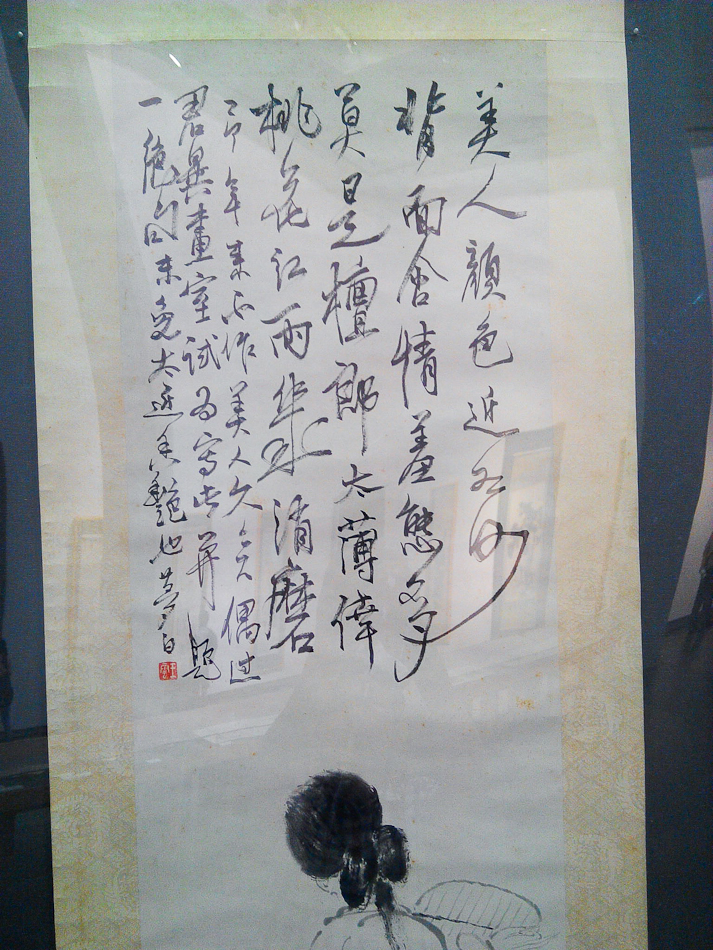 美人顏色近如何
背面含情羞態多
莫是檀郎太薄倖
桃花紅雨消磨
年来不作美人久矣偶過
君異畫室試為寫此并題
一絕句未免太近香艷也夢白
王雲